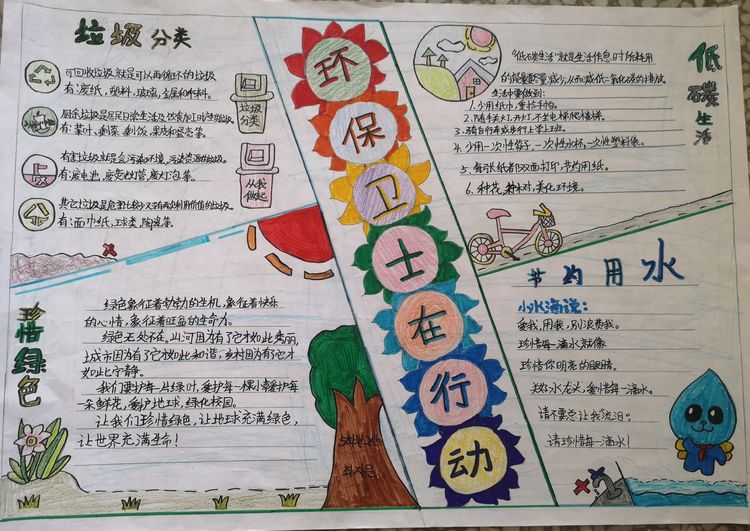 垃圾分类
可回收垃圾就是可以再循环的垃圾
有:废纸,塑料,玻璃,金属和布料。
有:菜叶,剩菜,剩饭,果皮和蛋壳等。
有害垃圾就是会污染环境,污染资源的垃圾。
有:废电池,废荧光灯管,废灯泡等。
其它垃圾是危害比较少又没有再次利用价值的垃圾。
有:面巾纸,尘土类,陶瓷等。
垃圾
分类
从我
做起
环保卫士在行动
低碳生活
"低碳生活"就是生活作息时所耗用
的能量要减少,从而减低二氧化碳的排放。
生活中要做到:
1.少用纸巾,重拾手帕。
2.随手关灯,开灯,不坐电梯爬楼梯。
3.骑自行车或步行上学上班。
4.少用一次性筷子,一次性水杯,一次性塑料袋。
5.每张纸都双面打印,节约用纸。
6.种花,种树,美化环境。
节约用水
小水滴说:
爱我,用我,别浪费我。
珍惜每一滴水就像
珍惜你明亮的眼睛。
关好水龙头,爱惜每一滴水。
请不要总让我流泪。
请珍惜每一滴水!
珍惜绿色
绿色象征着勃勃的生机,象征着快乐
的心情,象征着旺盛的生命力。
绿色无处不在,山河因为有了它才如此秀丽,
城市因为有了它才如此和谐,乡村因为有了它才
如此宁静。
我们要护每一片绿叶,爱护每一棵小草,爱护每一
朵鲜花,爱护地球,绿化校园。
让我们珍惜绿色,让地球充满绿色,
让世界充满生命!